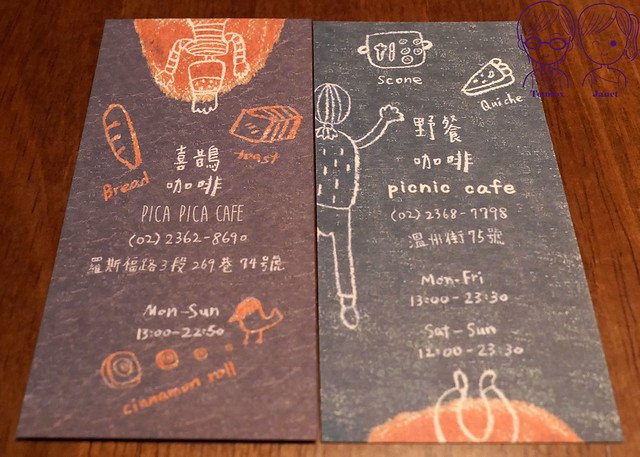 Bread
toast
喜鵲
咖啡
PICA PICA CAFE
(02) 2362-8690
羅斯福路3段269巷74號
Mon-Sun
13:00-22:50
cinnamon roll
Scone
Quiche
野餐
咖啡
picnic cafe
(02) 2368-7798
溫州街75號
Mon-Fri
13:00-23:30
Sat-Sun
12:00-23:30
Tommy
Janet